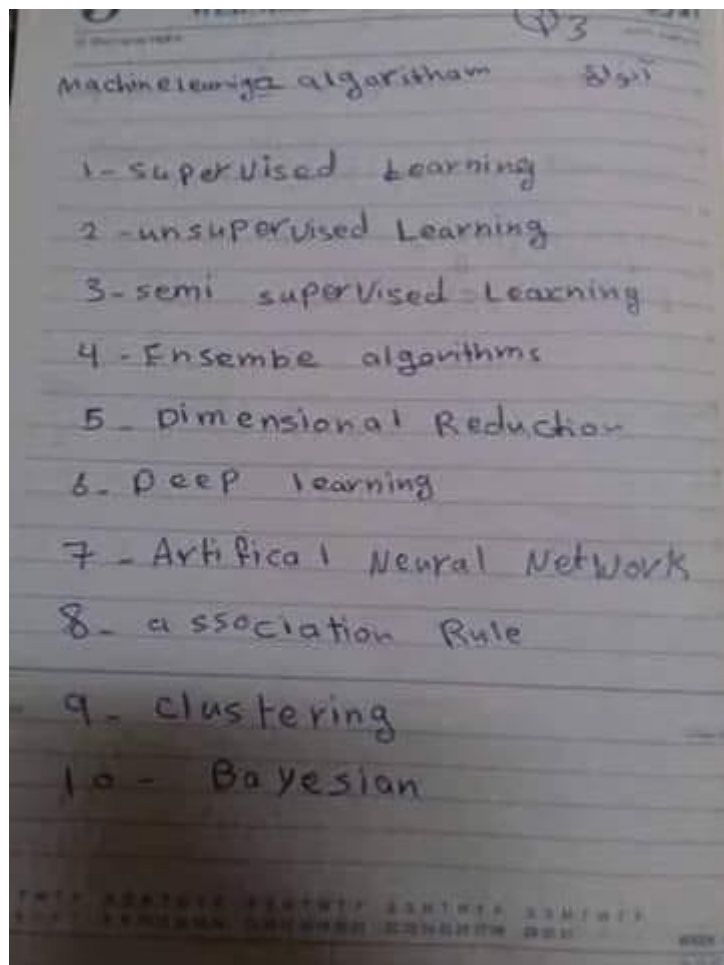 3
Machine leurniga algaritham أنواع
1- supervised Learning
2 - unsupervised Learning
3- semi supervised Learning
4 - Ensembe algorithms
5 - Dimensional Reduction
6- Deep learning
7 - Artifical Neural Network
8- association Rule
9- clustering
10- Bayesian